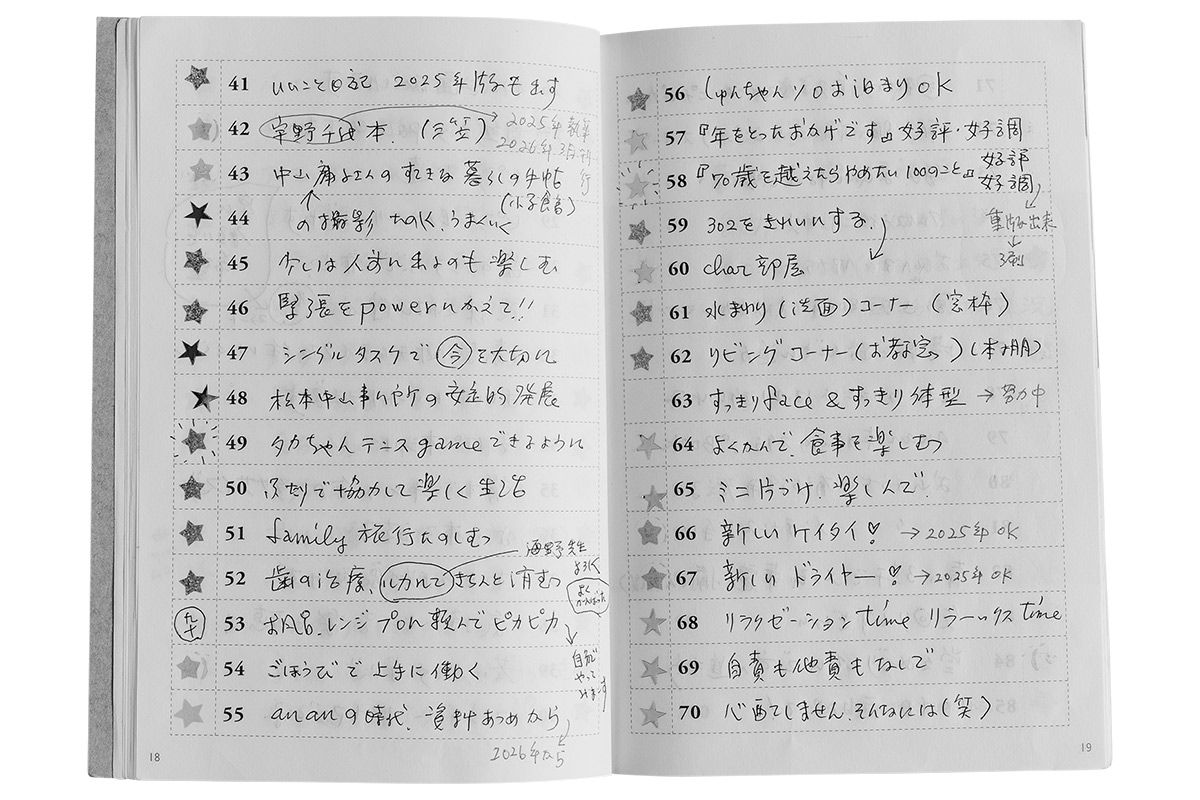 41 いいこと日記 2025年版も出す
42 宇野千代本.(三笠)→2025年執筆
2026年3月刊行
43 中山庸子さんのすてきな暮らしの手帖
(小学館)
44 の撮影 たのしく、うまくいく
45 少しは人前に出るのも楽しむ
46 緊張をpowerにかえて!!
47 シングルタスクで今を大切に
48 松本中山事ムヤケの安定的発展
49 タカちゃんテニスgameできるように
50 ふたりで協力して楽しく生活
51 family旅行たのしむっ
52 歯の治療、ルカルで きちんと済むっ
海野先生
よろしく
よく
がんばった
53 お風呂、レンジプロに頼んでピカピカ
自分で
やって
みます
54 ごほうびで上手に働く
55 ananの時代、資料あつめから
2026年なら
18
56 しゅんちゃんソロお泊まりOK
57 『年をとったおかげです』好評・好調
58 『70歳を越えたらやめたい100のこと』好評
好調
重版出来
3刷
59 302をきれいにする.
60 char部屋
61 水まわり(洗面)コーナー(窓枠)
62 リビングコーナー(お教室)(本棚)
63 すっきりface & すっきり体型 →努力中
64 よくかんで、食事を楽しむっ
65 ミニ片づけ楽しんで.
66 新しいケイタイ♡ →2025年OK
67 新しいドライヤー♡→2025年OK
68 リラクゼーションtime リラーックスtime
69 自責も他責もなしで
70 心配てしません、そんなには(笑)
19